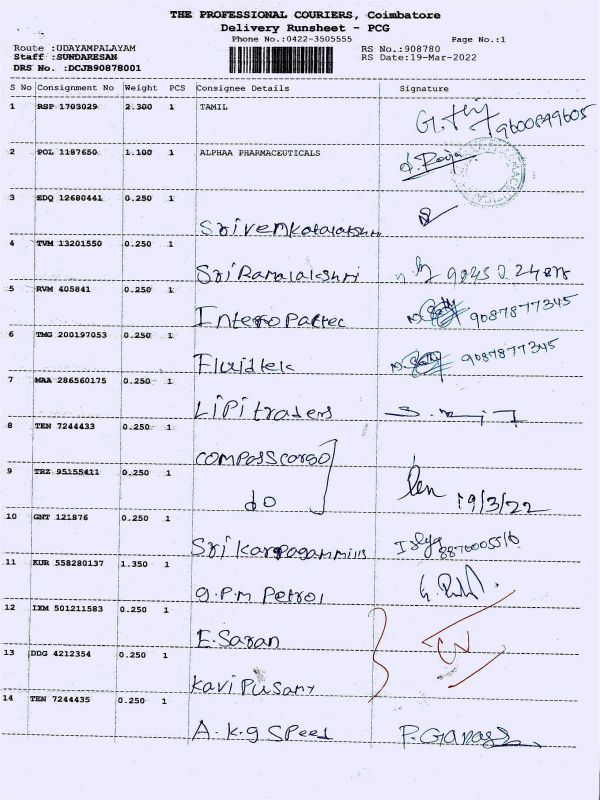 THE PROFESSIONAL COURIERS, Coimbatore
Delivery Runsheet - PCG
Phone No.:0422-3505555 Page No.:1
Route :UDAYAMPALAYAM RS No.:908780
Staff :SUNDARESAN RS Date:19-Mar-2022
DRS No. :DCJB90878001
S No Consignment No Weight PCS Consignee Details Signature
1 RSP 1703029 2.300 1 TAMIL
9600899605
2 POL 1187650 1.100 1 ALPHAA PHARMACEUTICALS
3 EDQ 12680441 0.250 1
4 TVM 13201550 0.250 1
Sri Ramalakshmi
5 RVM 405841 0.250 1
9087877345
6 TMG 200197053 0.250 1
Fluidtek 9087877345
7 MAA 286560175 0.250 1
LiPi traders
8 TEN 7244433 0.250 1
compass cargo
9 TRZ 95155411 0.250 1
do 19/3/22
10 GNT 121876 0.250 1
Sri Karpagammills
11 KUR 558280137 1.350 1
g.p.m Petrol
12 IXM 501211583 0.250 1
E.Saran
13 DDG 4212354 0.250 1
Kavi Pusany
14 TEN 7244435 0.250 1
A.K.g SPeed